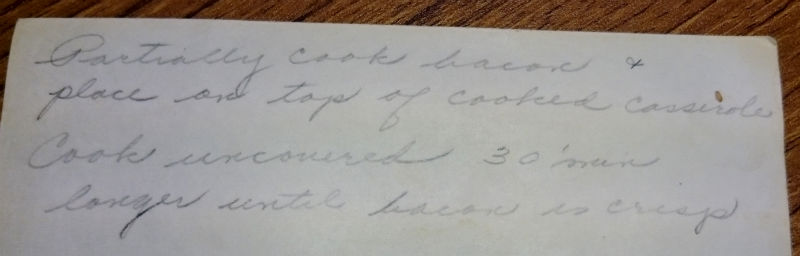 Partially cook bacon &
place on top of cooked casserole
Cook uncovered 30 min
longer until bacon is crisp